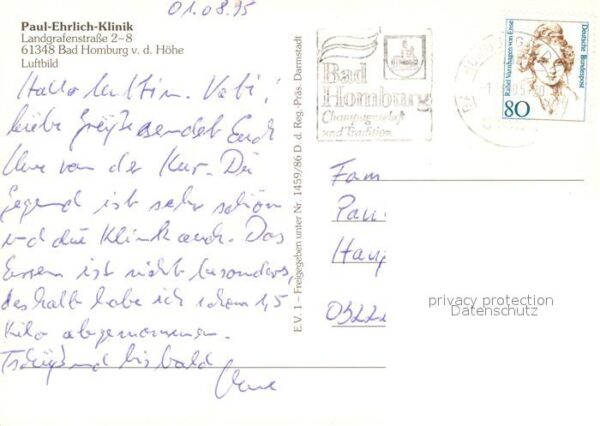 01.08.95
Paul-Ehrlich-Klinik
Landgrafenstraße 2–8
61348 Bad Homburg v. d. Höhe
Luftbild
Hallo
liebe Grüße sendet Euch
von der Kur. Die
Gegend ist sehr schön
und die Klinik auch. Das
Essen ist nicht besonders,
deshalb habe ich schon 1,5
Kilo abgenommen.
Tschüß und bis bald
E.V. 1 – Freigegeben unter Nr. 1459/86 D. d. Reg.-Präs. Darmstadt
Bad
Homburg
Champagnerluft
und Tradition
Rahel Varnhagen von Ense
Deutsche Bundespost
80
Fam
Pau
Hau
privacy protection
Datenschutz